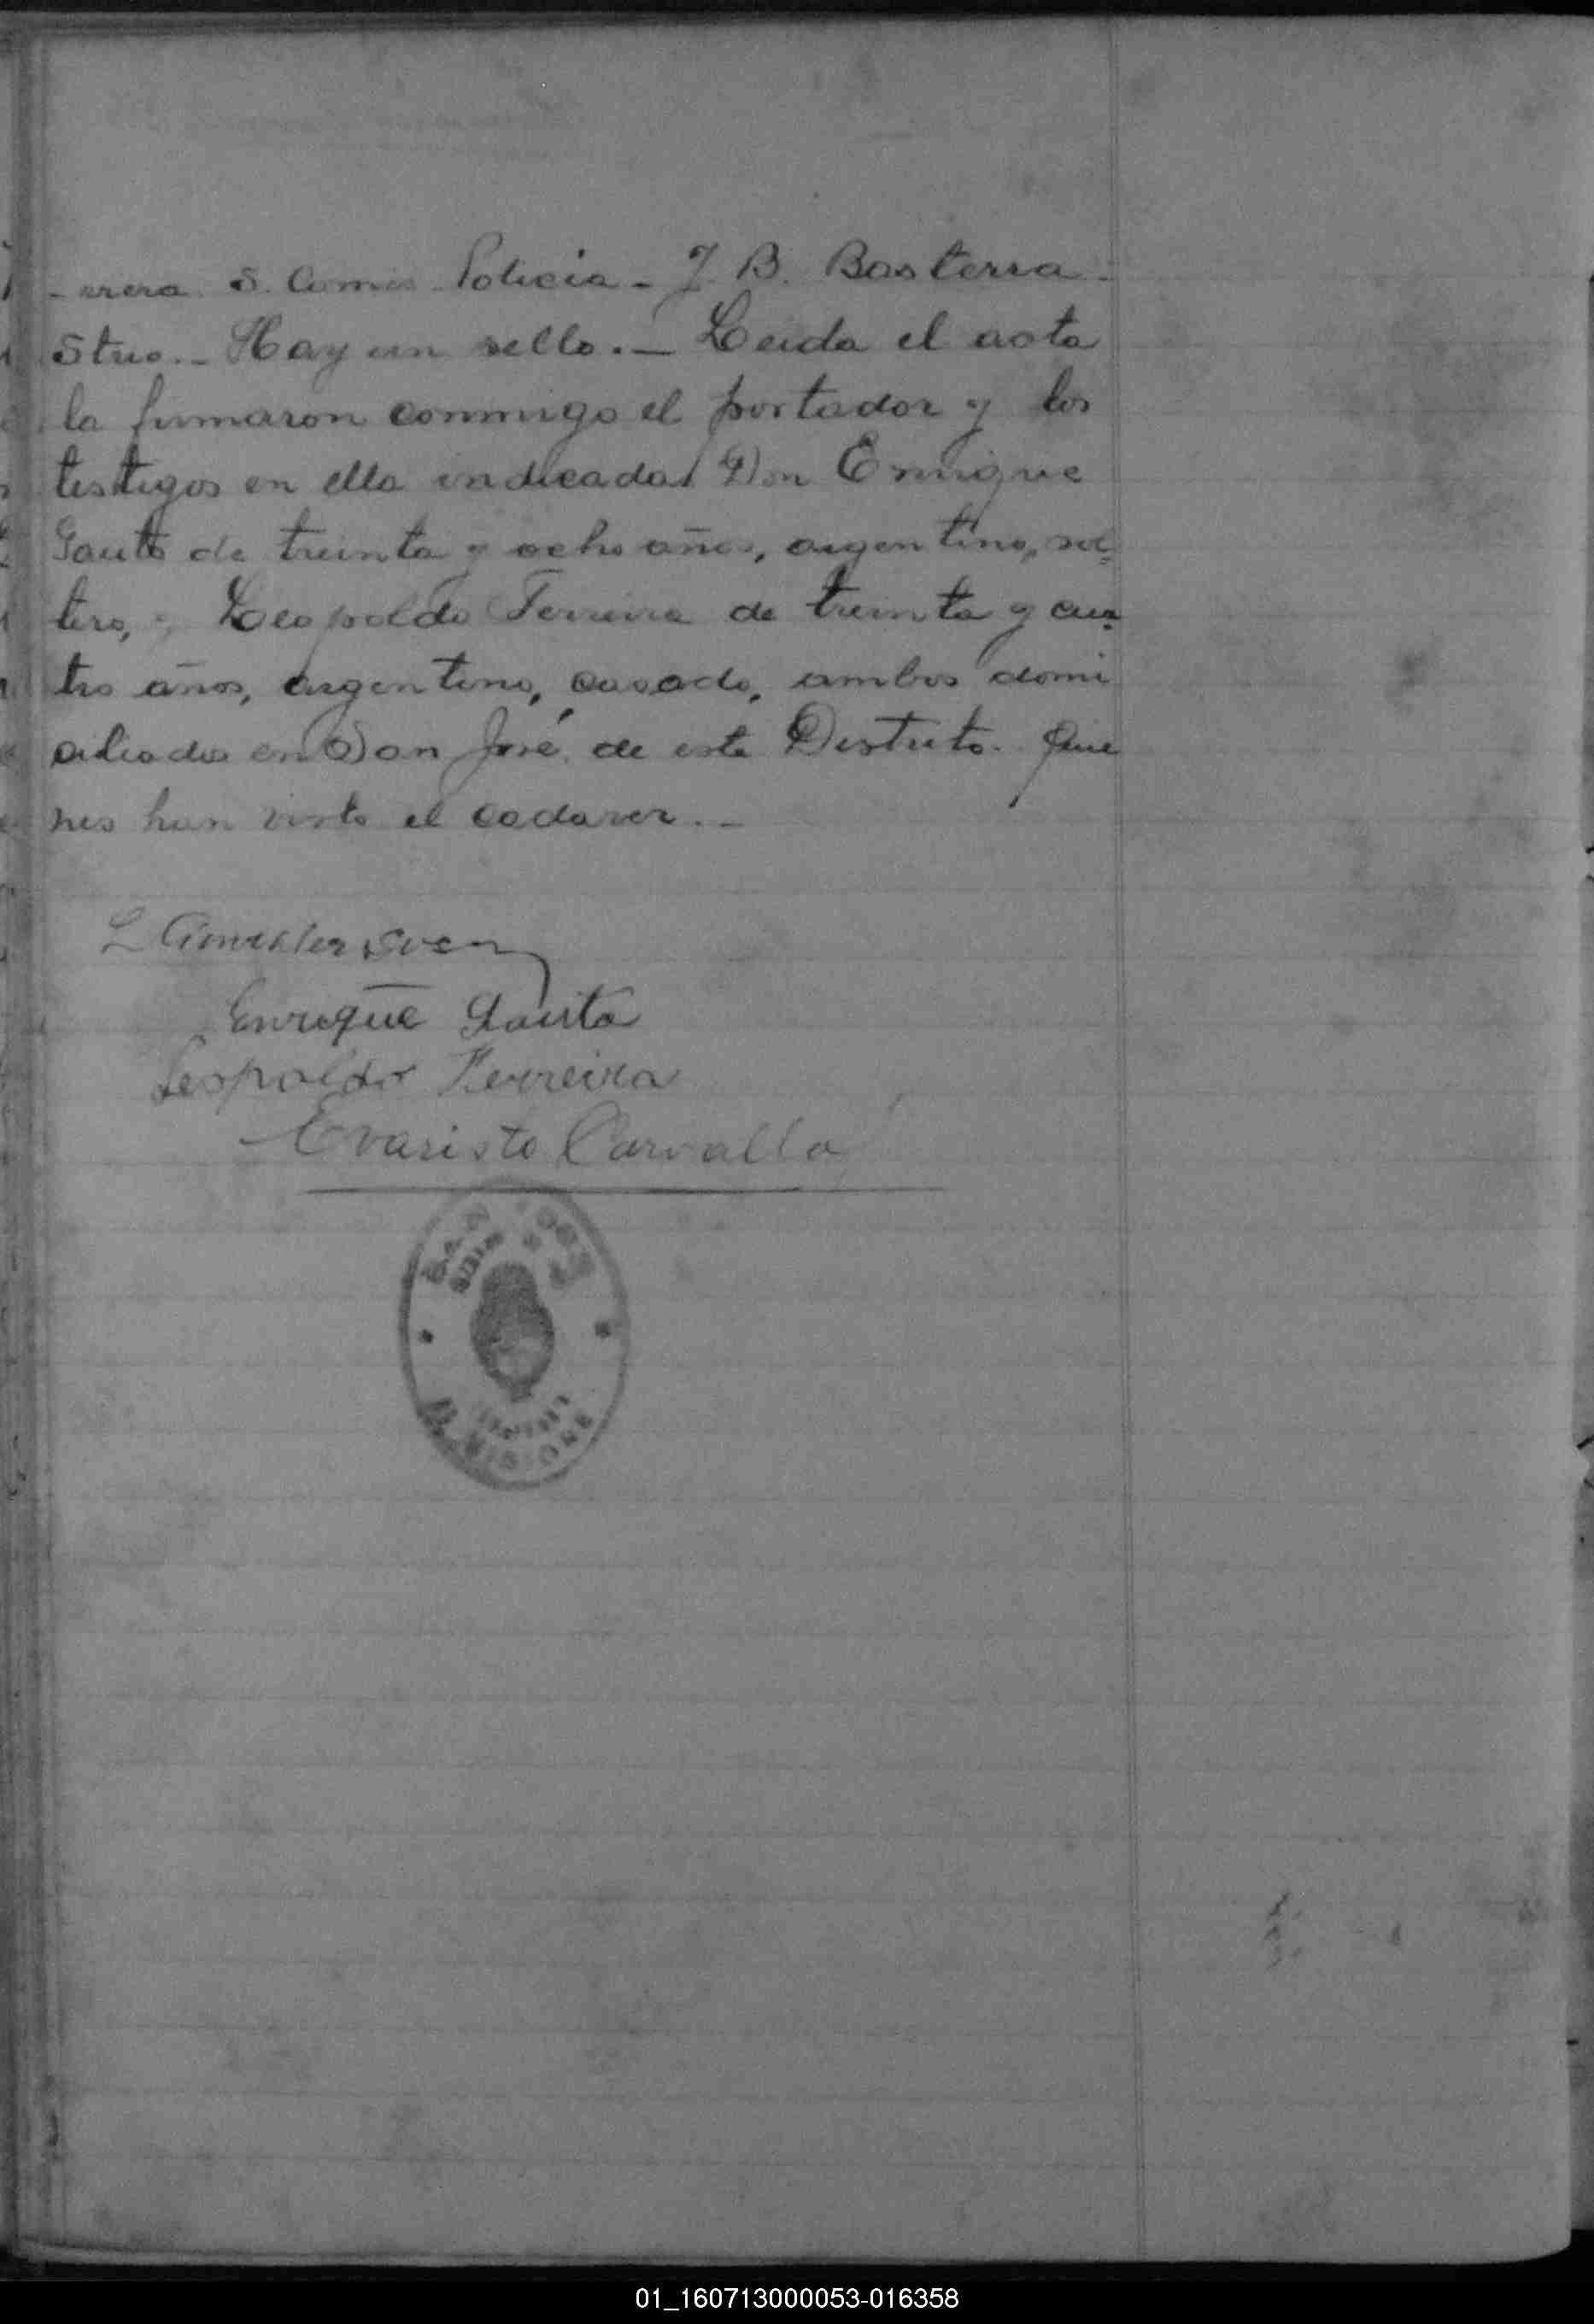 -rrera. S. Comis. Policia - J. B. Basterra -
Strio. - Hay un sello. - Leida el acta
la firmaron conmigo el portador y los
testigos en ella indicados Don Enrique
Gauto de treinta y ocho años, argentino, sol-
tero, y Leopoldo Ferreira de treinta y cua-
tro años, argentino, casado, ambos domi
ciliados en San José, de este Distrito. Quie
nes han visto el cadaver. -
Enrique Gauto
Leopoldo Ferreira
Evaristo Carvallo
SAN JOSE
MISIONES
01_160713000053-016358